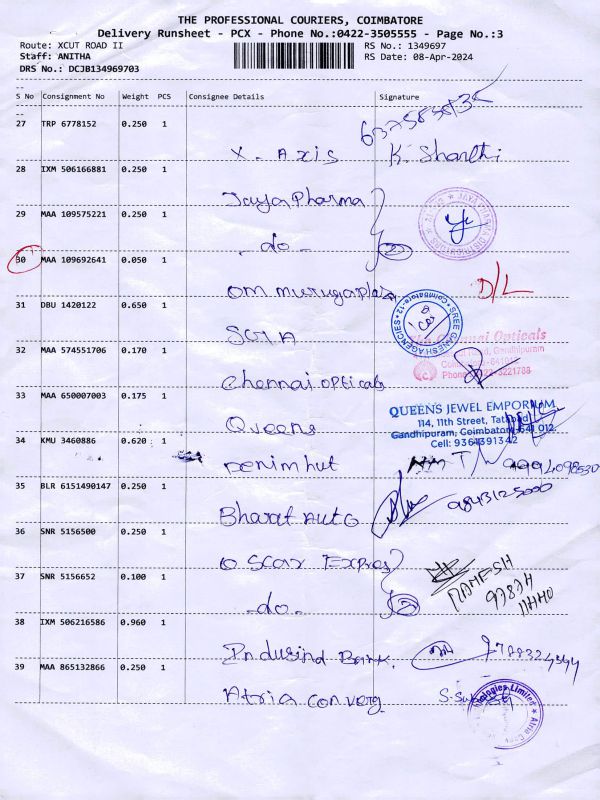 THE PROFESSIONAL COURIERS, COIMBATORE
Delivery Runsheet - PCX - Phone No.:0422-3505555 - Page No.:3
Route: XCUT ROAD II RS No.: 1349697
Staff: ANITHA RS Date: 08-Apr-2024
DRS No.: DCJB134969703
S No Consignment No Weight PCS Consignee Details Signature
27 TRP 6778152 0.250 1
X - Axis K. Sharthi
28 IXM 506166881 0.250 1
Jaya Pharma
29 MAA 109575221 0.250 1
-do-
30 MAA 109692641 0.050 1
OM murugaplaza D/L
31 DBU 1420122 0.650 1
SREE GANESH AGENCIES Coimbatore-12
SGTA
32 MAA 574551706 0.170 1
Chennai Opticals
Gandhipuram
Chennai Opticals
33 MAA 650007003 0.175 1
QUEENS JEWEL EMPORIUM
114, 11th Street, Tatabad
Gandhipuram, Coimbatore 641 012.
Cell: 9361391342
Queens
34 KMU 3460886 0.620 1
Denim hut
35 BLR 6151490147 0.250 1
Bharat Auto 9843125000
36 SNR 5156500 0.250 1
Oscar Expres
37 SNR 5156652 0.100 1
RAMESH
-do-
38 IXM 506216586 0.960 1
Indusind Bank.
39 MAA 865132866 0.250 1
Atria converg